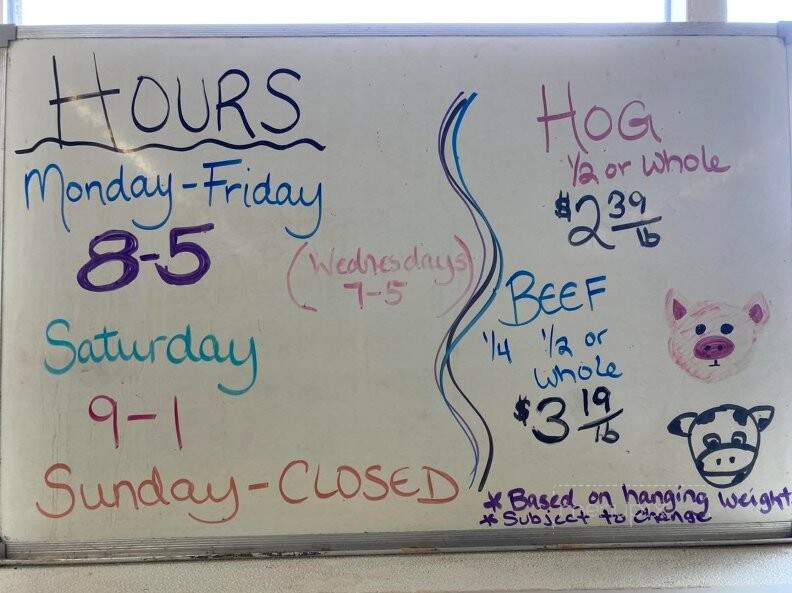 HOURS
Monday-Friday
8-5
(Wednesdays
7-5)
Saturday
9-1
Sunday-CLOSED
HOG
1/2 or whole
$2 39/lb
BEEF
1/4 1/2 or
whole
$3 19/lb
* Based on hanging weight
* Subject to change